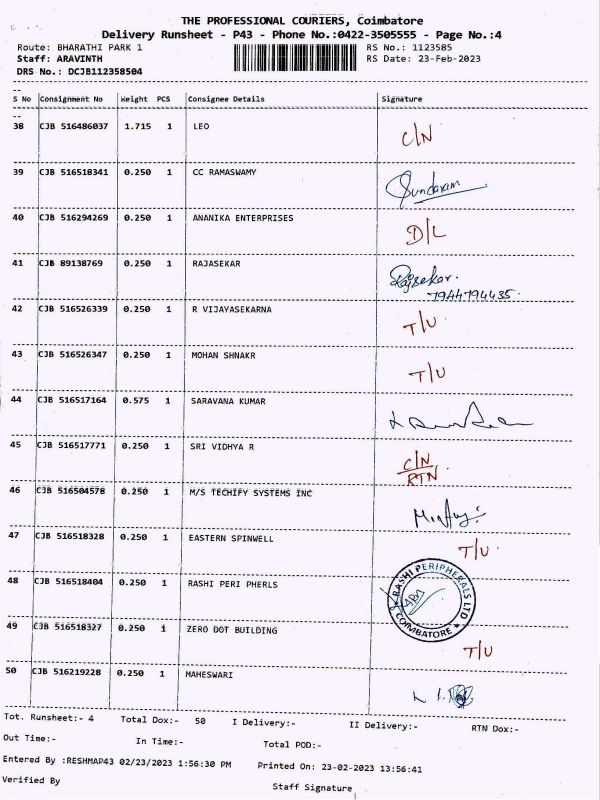 THE PROFESSIONAL COURIERS, Coimbatore
Delivery Runsheet - P43 - Phone No.:0422-3505555 - Page No.:4
Route: BHARATHI PARK 1 RS No.: 1123585
Staff: ARAVINTH RS Date: 23-Feb-2023
DRS No.: DCJB112358504
S No Consignment No Weight PCS Consignee Details Signature
38 CJB 516486037 1.715 1 LEO C/N
39 CJB 516518341 0.250 1 CC RAMASWAMY Sundaram
40 CJB 516294269 0.250 1 ANANIKA ENTERPRISES D/L
41 CJB 89138769 0.250 1 RAJASEKAR Rajsekar.
7944794435.
42 CJB 516526339 0.250 1 R VIJAYASEKARNA T/U
43 CJB 516526347 0.250 1 MOHAN SHNAKR T/U
44 CJB 516517164 0.575 1 SARAVANA KUMAR
45 CJB 516517771 0.250 1 SRI VIDHYA R C/N
RTN.
46 CJB 516504578 0.250 1 M/S TECHIFY SYSTEMS INC
47 CJB 516518328 0.250 1 EASTERN SPINWELL T/U
48 CJB 516518404 0.250 1 RASHI PERI PHERLS RASHI PERIPHERALS LTD COIMBATORE
49 CJB 516518327 0.250 1 ZERO DOT BUILDING T/U
50 CJB 516219228 0.250 1 MAHESWARI
Tot. Runsheet:- 4 Total Dox:- 50 I Delivery:- II Delivery:- RTN Dox:-
Out Time:- In Time:- Total POD:-
Entered By :RESHMAP43 02/23/2023 1:56:30 PM Printed On: 23-02-2023 13:56:41
Verified By Staff Signature